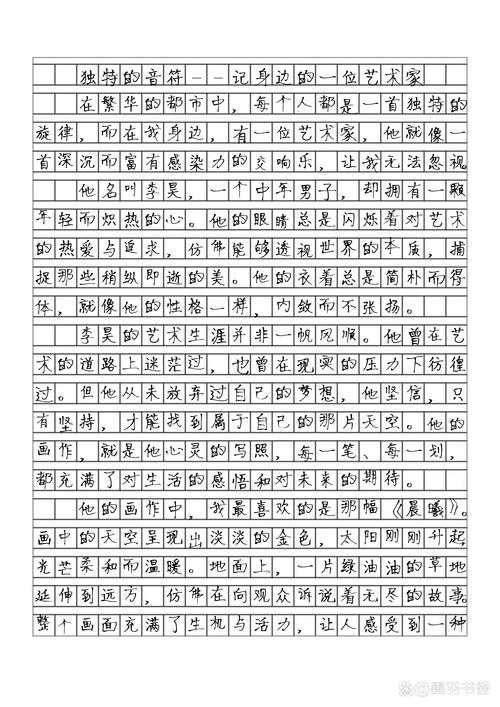 独特的音符--记身边的一位艺术家
在繁华的都市中，每个人都是一首独特的
旋律，而在我身边，有一位艺术家，他就像一
首深沉而富有感染力的交响乐，让我无法忽视。
他名叫李昊，一个中年男子，却拥有一颗
年轻而炽热的心。他的眼睛总是闪烁着对艺术
的热爱与追求，仿佛能够透视世界的本质，捕
捉那些稍纵即逝的美。他的衣着总是简朴而得
体，就像他的性格一样，内敛而不张扬。
李昊的艺术生涯并非一帆风顺。他曾在艺
术的道路上迷茫过，也曾在现实的压力下彷徨
过。但他从未放弃过自己的梦想，他坚信，只
有坚持，才能找到属于自己的那片天空。他的
画作，就是他心灵的写照，每一笔、每一划，
都充满了对生活的感悟和对未来的期待。
他的画作中，我最喜欢的是那幅《晨曦》。
画中的天空呈现出淡淡的金色，太阳刚刚升起，
光芒柔和而温暖。地面上，一片绿油油的草地
延伸到远方，仿佛在向观众诉说着无尽的故事。
整个画面充满了生机与活力，让人感受到一种
@酷羽书香